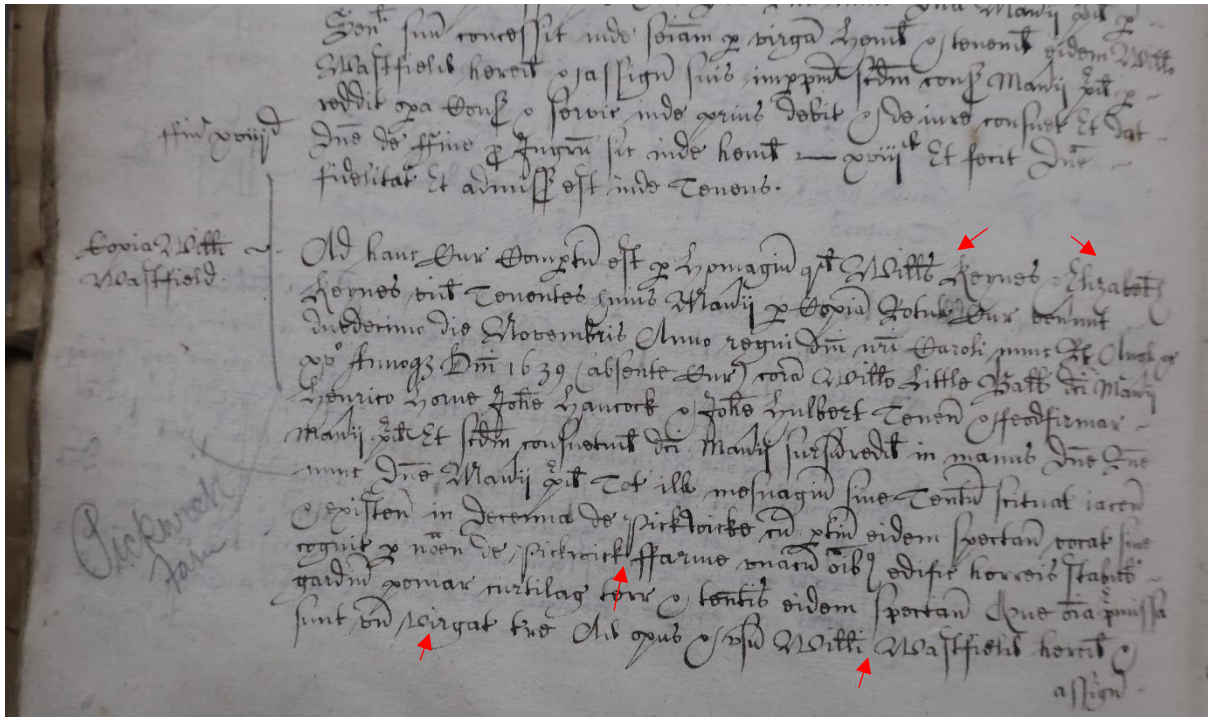 Sen suu concessit inde seiam p virga Hend & tenend eidem Willo
Wastfield hered & assign suis imppm scdm cons Manij pd p
reddit opa Cons & servic inde prius debit & de iure consuet Et dat
ffin xviijd
Dne de ffine p Ingru sic inde hend — xviijd Et fecit Dne
fidelitat Et admiss est inde Tenens.
Copia Willi
Wastfield.
Ad hanc Cur Comptu est p Homagiu qd Wills Keynes & Elizabeth
Keynes eius Tenentes huius Manij p Copia Rotul Cur venerunt
duodecimo die Novembris Anno regni dni nri Caroli nunc Re Angl &
xvo Annoq Dni 1639 (absente Cur) cora Willo Little Ball dci Manij
Henrico Horne Johe Hancock & Johe Hulbert Tenen & ffeodfirmar
Manij pd Et scdm consuetud dci Manij sursdredid in manus Dne
nunc Dne Manij pd Tot ill mesuagiu sive Tentu scituat iacen
& existen in Decenna de Pickwicke cu ptin eidem spectan vocat sive
cognit p noen de Pickwick ffarme unacu oibq edific horreis stabul
gardin pomar curtilag terr & tentis eidem spectan Que oia pmissa
sunt un Virgat tre Ad opus & usu Willi Wastfield hered &
assign
Pickwick
Farm